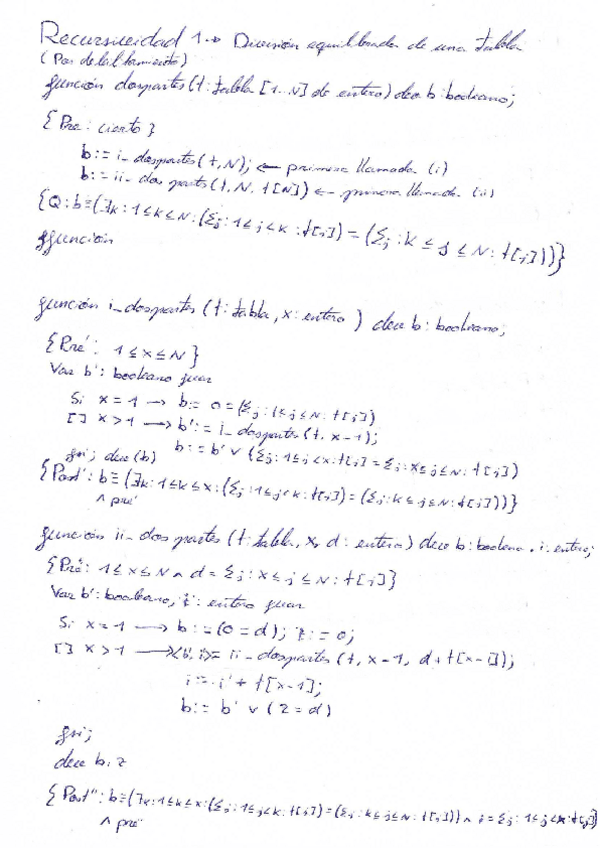 Recursividad 1 → División equilibrada de una tabla
(Pas de la l. hamiento)
función dospartes (t: tabla [1..N] de entero) dev b: booleano;
{Pre: cierto}
b := i_dospartes (t, N); ← primera llamada (i)
b := ii_dos partes (t, N, t[N]) ← primera llamada (ii)
{Q: b ≡ (∃k: 1 ≤ k ≤ N: (Σj: 1 ≤ j < k: t[j]) = (Σj: k ≤ j ≤ N: t[j]))}
ffunción
función i_dospartes (t: tabla, x: entero) dev b: booleano;
{Pre': 1 ≤ x ≤ N}
Var b': booleano fvar
Si x = 1 → b := 0 = (Σj: 1 ≤ j ≤ N: t[j])
[] x > 1 → b' := i_dospartes (t, x-1);
b := b' ∨ (Σj: 1 ≤ j < x: t[j] = Σj: x ≤ j ≤ N: t[j])
fsi; dev (b)
{Post': b ≡ (∃k: 1 ≤ k ≤ x: (Σj: 1 ≤ j < k: t[j]) = (Σj: k ≤ j ≤ N: t[j]))}
∧ pre'
función ii_dos partes (t: tabla, x, d: entero) dev b: booleano, i: entero;
{Pre'': 1 ≤ x ≤ N ∧ d = Σj: x ≤ j ≤ N: t[j]}
Var b': booleano, i': entero fvar
Si x = 1 → b := (0 = d); i := 0;
[] x > 1 → <b', i'> := ii_dospartes (t, x-1, d + t[x-1]);
i := i' + t[x-1];
b := b' ∨ (2 = d)
fsi;
dev b, 2
{Post'': b ≡ (∃k: 1 ≤ k ≤ x: (Σj: 1 ≤ j < k: t[j]) = (Σj: k ≤ j ≤ N: t[j])) ∧ i = Σj: 1 ≤ j < x: t[j]}
∧ pre''